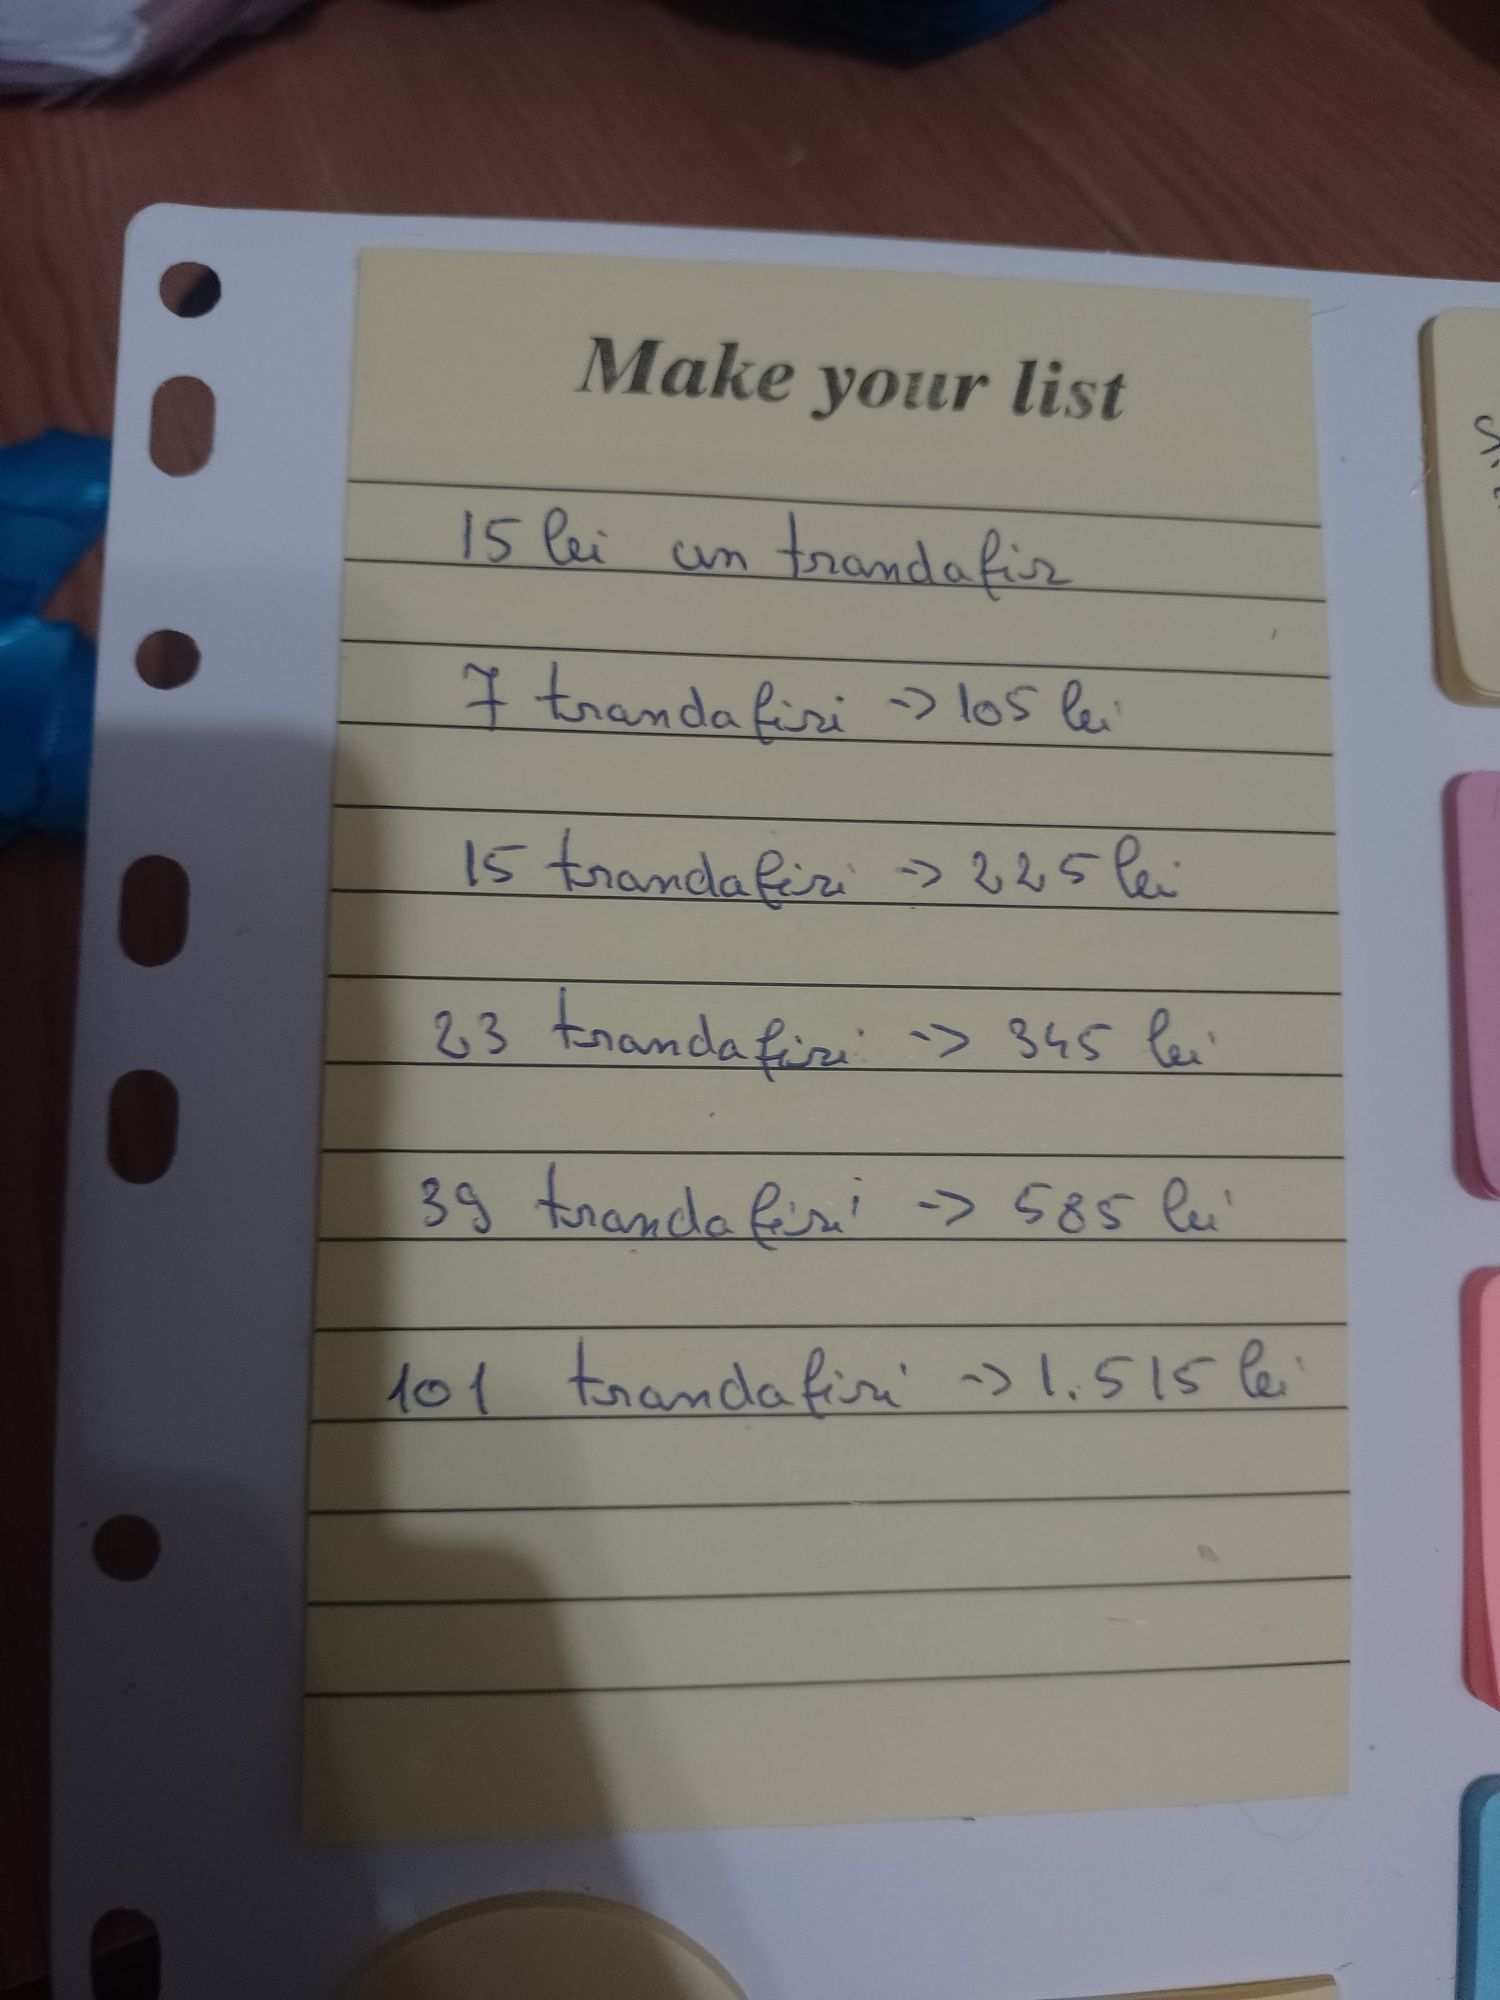 Make your list
15 lei un trandafir
7 trandafiri -> 105 lei
15 trandafiri -> 225 lei
23 trandafiri -> 345 lei
39 trandafiri -> 585 lei
101 trandafiri -> 1.515 lei